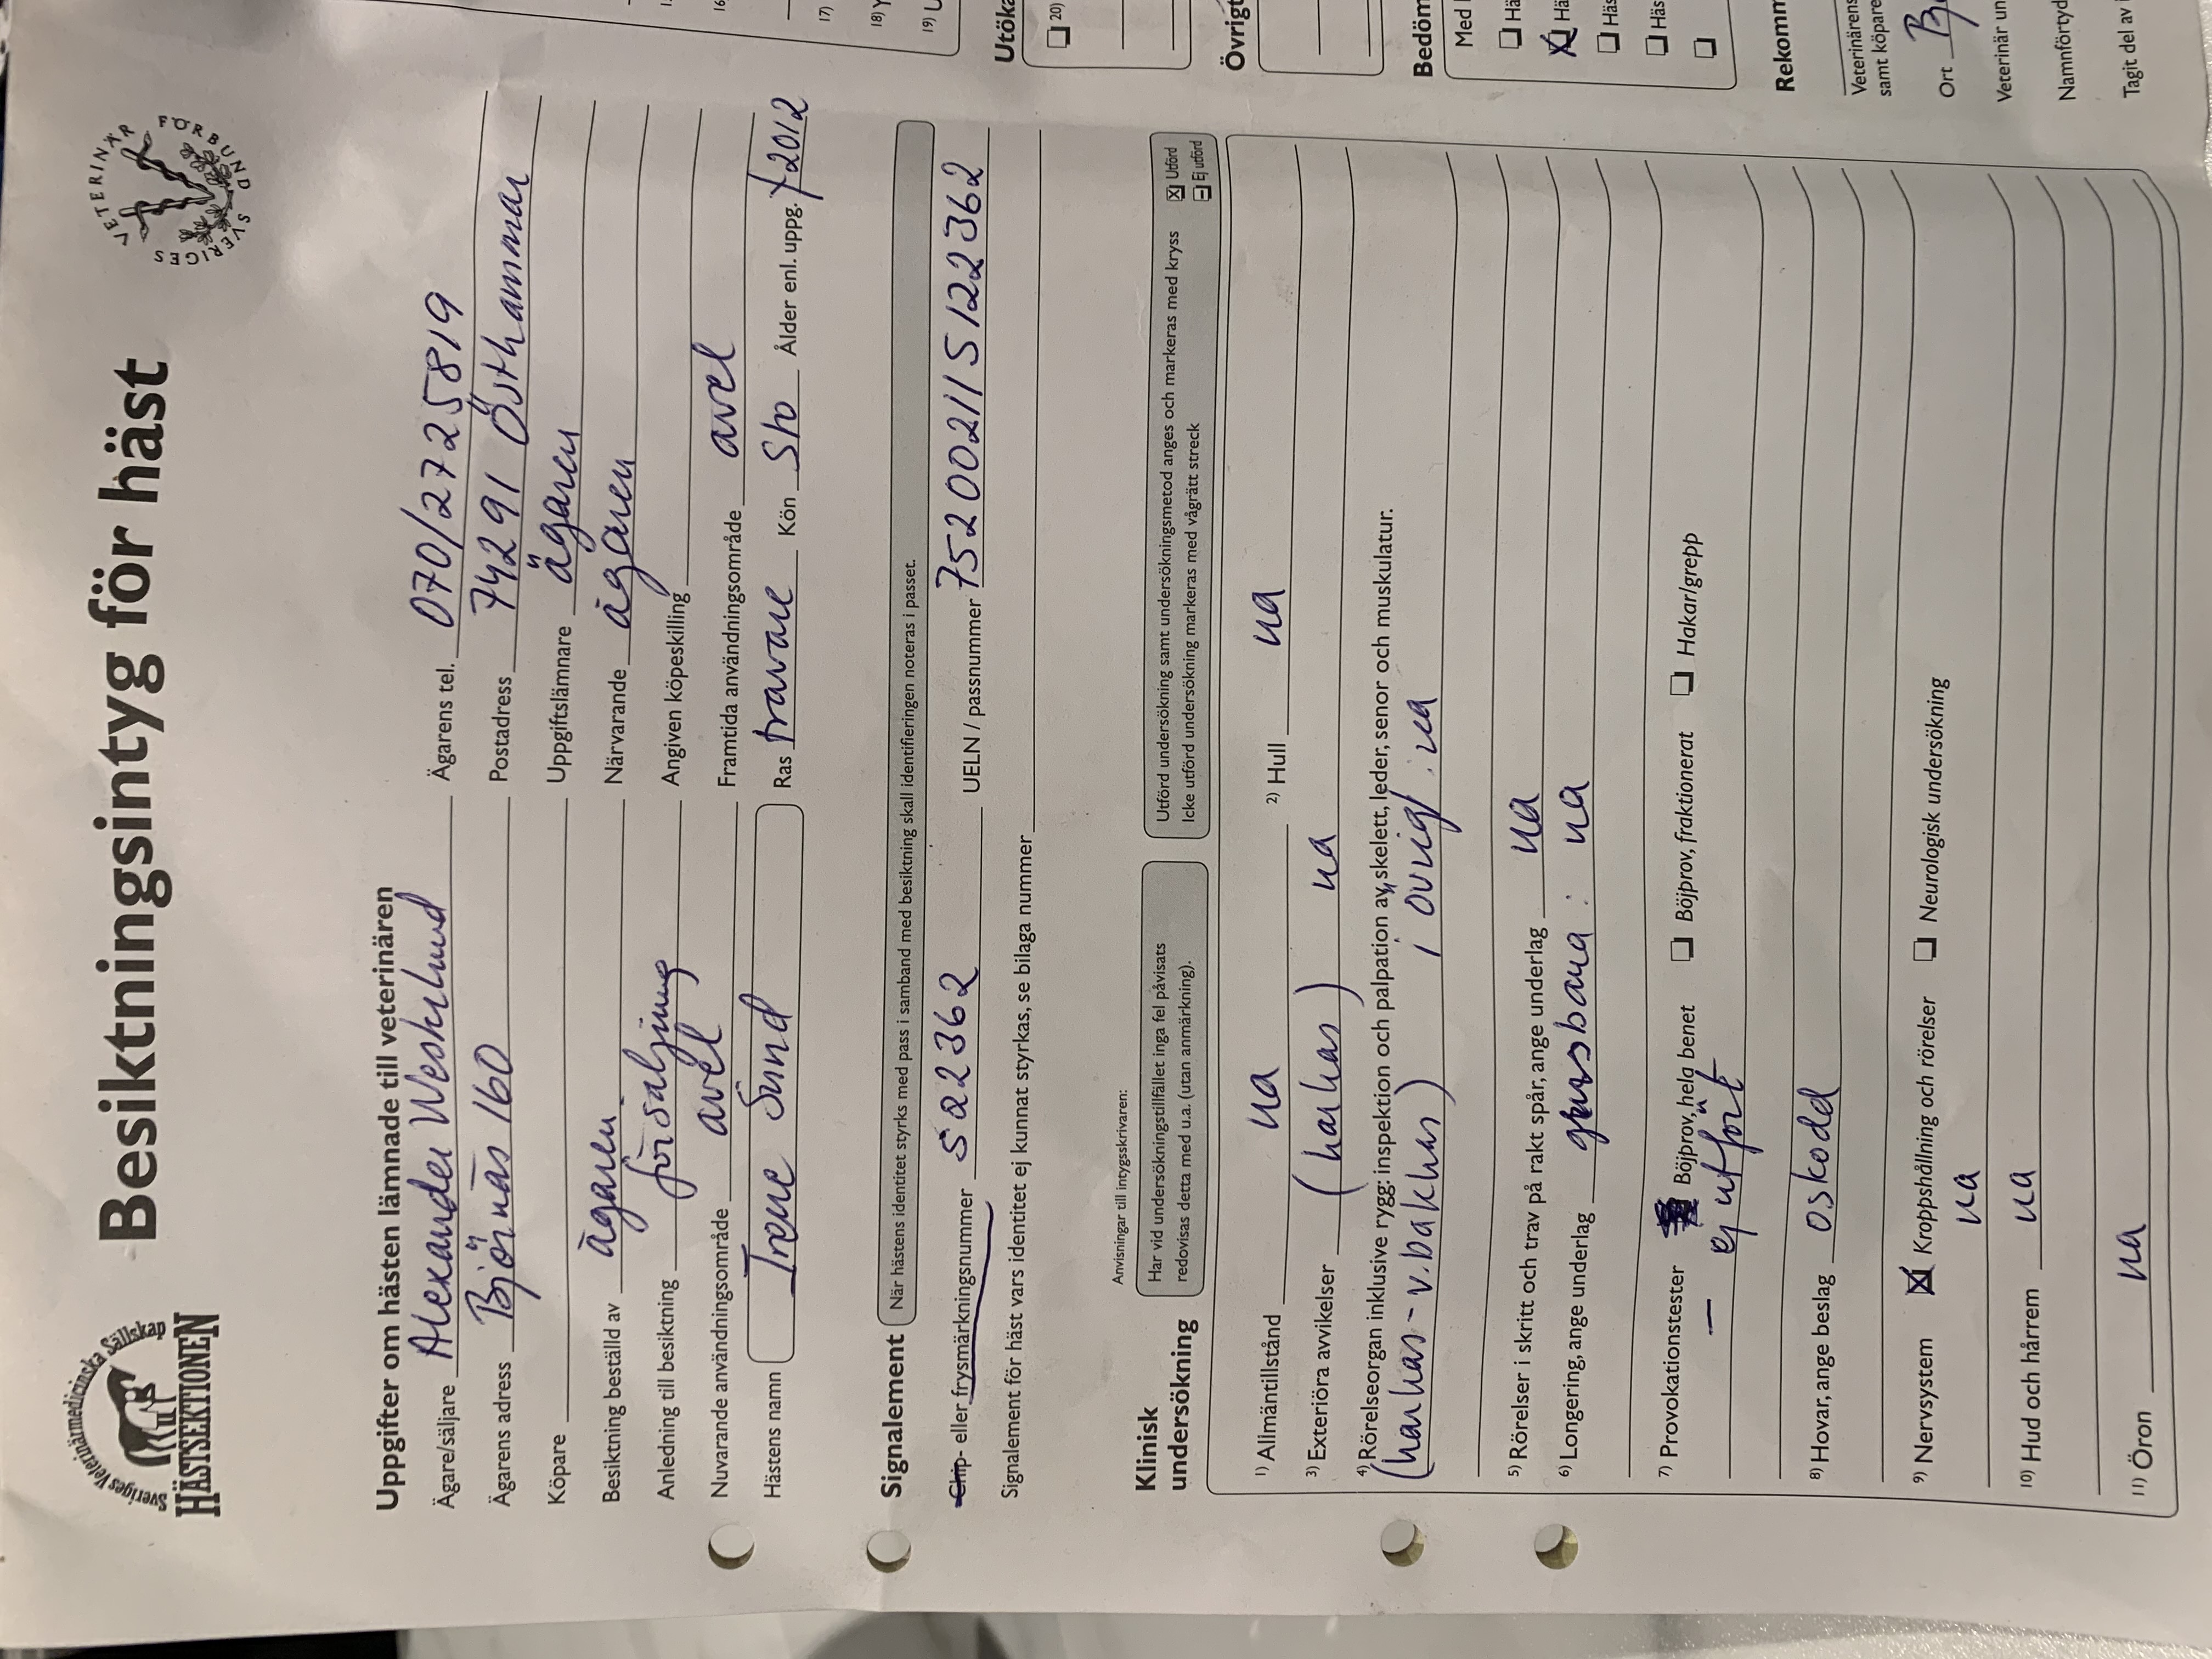 Sveriges Veterinärmedicinska Sällskap
HÄSTSEKTIONEN
Besiktningsintyg för häst
SVERIGES VETERINÄR FÖRBUND
Uppgifter om hästen lämnade till veterinären
Ägare/säljare Alexander Wesslund Ägarens tel. 070/2725819
Ägarens adress Björnäs 160 Postadress 74291 Östhammar
Köpare Uppgiftslämnare ägaren
Besiktning beställd av ägaren Närvarande ägaren
Anledning till besiktning försäljning Angiven köpeskilling
Nuvarande användningsområde avel Framtida användningsområde avel
Hästens namn Irene Sund Ras travare Kön Sto Ålder enl. uppg. f 2012
Signalement När hästens identitet styrks med pass i samband med besiktning skall identifieringen noteras i passet.
Chip- eller frysmärkningsnummer 522362 UELN / passnummer 752002115122362
Signalement för häst vars identitet ej kunnat styrkas, se bilaga nummer
Anvisningar till intygsskrivaren:
Klinisk undersökning
Har vid undersökningstillfället inga fel påvisats
redovisas detta med u.a. (utan anmärkning).
Utförd undersökning samt undersökningsmetod anges och markeras med kryss
Icke utförd undersökning markeras med vågrätt streck
Utförd
Ej utförd
1) Allmäntillstånd ua 2) Hull ua
3) Exteriöra avvikelser (harhas) ua
4) Rörelseorgan inklusive rygg: inspektion och palpation av, skelett, leder, senor och muskulatur.
(harhas - v. bakhas) i övrigt ua
5) Rörelser i skritt och trav på rakt spår, ange underlag ua
6) Longering, ange underlag grusbana : ua
7) Provokationstester Böjprov, hela benet Böjprov, fraktionerat Hakar/grepp
— ej utfört
8) Hovar, ange beslag oskodd
9) Nervsystem Kroppshållning och rörelser Neurologisk undersökning
ua
10) Hud och hårrem ua
11) Öron ua
16)
17)
18)
19)
Utöka
20)
Övrigt
Bedöm
Med
Hä
Hä
Häs
Häs
Rekomm
Veterinärens
samt köpare
Ort
Veterinär un
Namnförtyd
Tagit del av